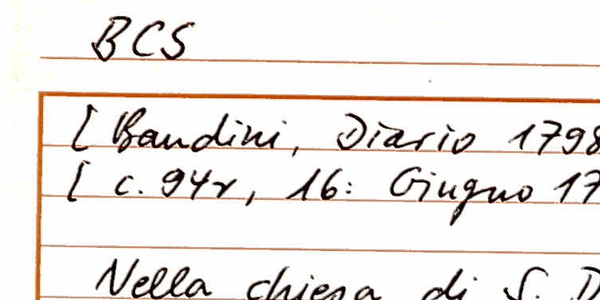 BCS
[ Bandini, Diario 1798
[ c. 94r, 16: Giugno 17
Nella chiesa di S. D